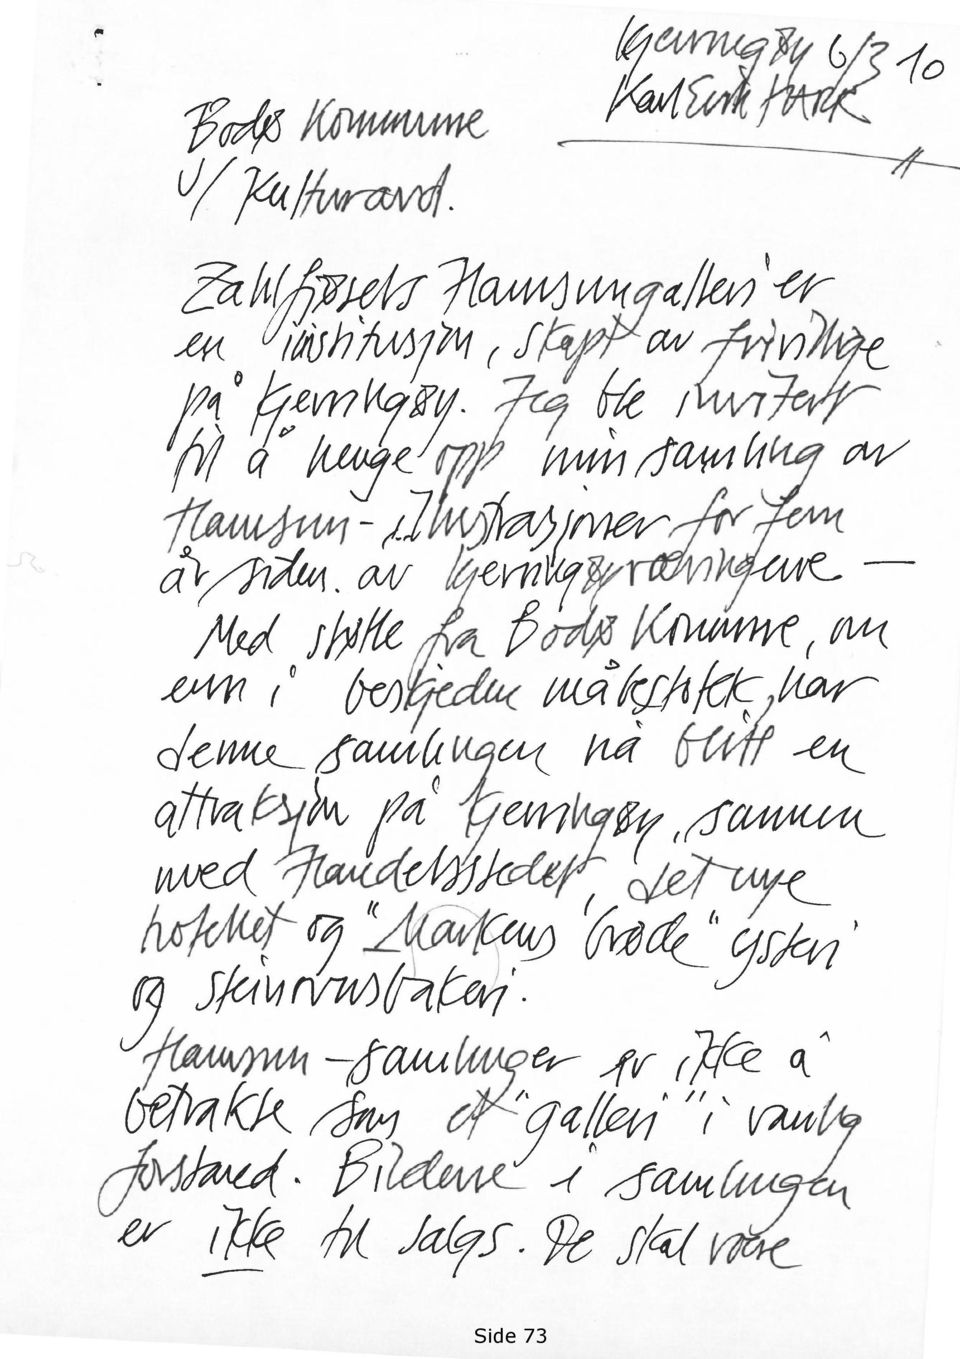 Kjerringøy 6/3 10
Karl Erik Harr
Bodø Kommune
v/ Kulturavd.
Zahlfjøsets Hamsungalleri er
en institusjon, skapt av frivillige
på Kjerringøy. Jeg ble invitert
til å henge opp min samling av
Hamsun-illustrasjoner for fem
år siden. av kjerringøyværingene —
Med støtte fra Bodø Kommune, om
enn i beskjeden målestokk, har
denne samlingen nå blitt en
attraksjon på Kjerringøy, sammen
med Handelsstedet, det nye
hotellet og "Markens Grøde" ysteri
og steinovnsbakeri.
Hamsun-samlinger er ikke å
betrakte som et "galleri" i vanlig
forstand. Bildene i samlingen
er ikke til salgs. De skal være
Side 73